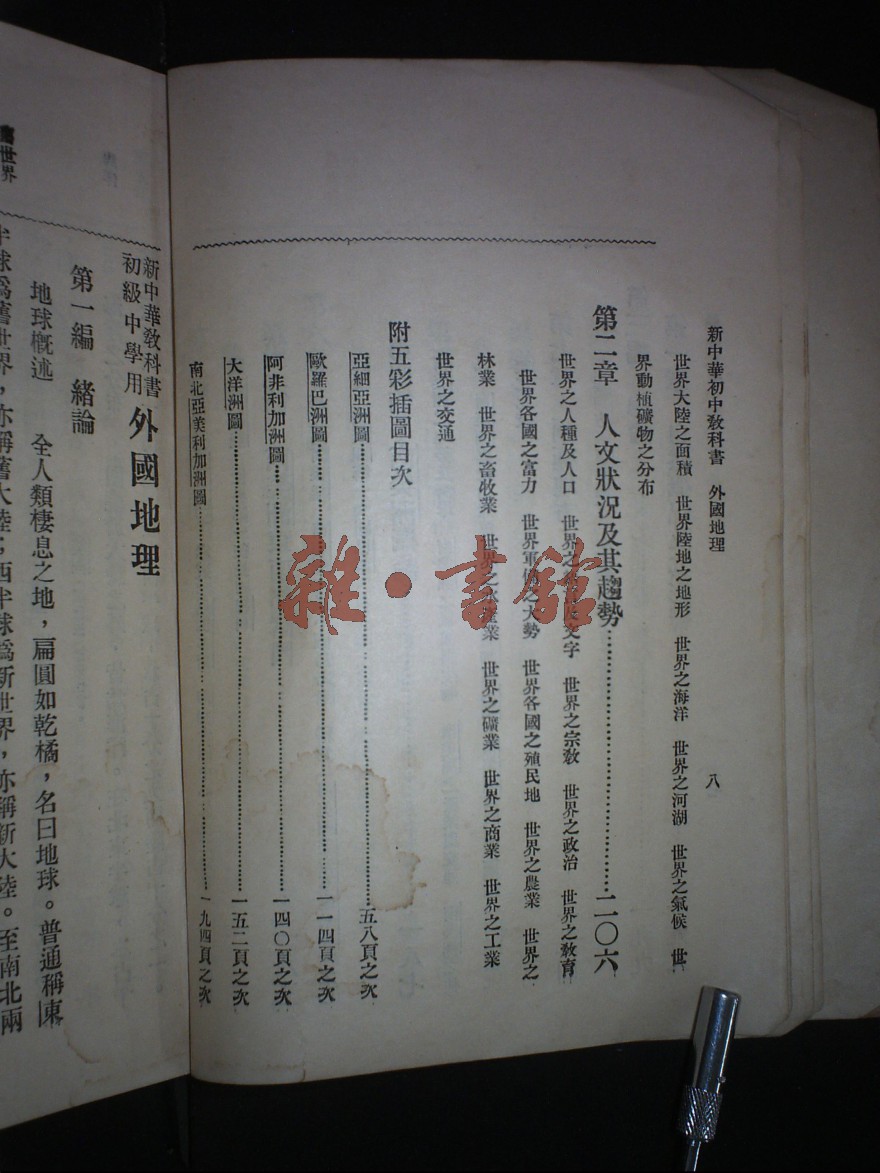 新中華初中教科書 外國地理 八
世界大陸之面積 世界陸地之地形 世界之海洋 世界之河湖 世界之氣候 世
界動植礦物之分布
第二章 人文狀況及其趨勢 二〇六
世界之人種及人口 世界之 文字 世界之宗教 世界之政治 世界之教育
世界各國之富力 世界軍備之大勢 世界各國之殖民地 世界之農業 世界之
林業 世界之畜牧業 世界之水產業 世界之礦業 世界之商業 世界之工業
世界之交通
附五彩插圖目次
亞細亞洲圖 五八頁之次
歐羅巴洲圖 一一四頁之次
阿非利加洲圖 一四〇頁之次
大洋洲圖 一五二頁之次
南北亞美利加洲圖 一九四頁之次
雜·書館
新中華教科書
初級中學用
外國地理
第一編 緒論
地球概述 全人類棲息之地，扁圓如乾橘，名曰地球。普通稱東
半球爲舊世界，亦稱舊大陸；西半球爲新世界，亦稱新大陸。至南北兩
世界